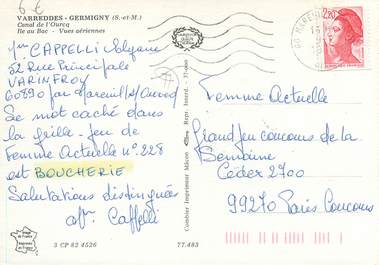 6 €
VARREDDES - GERMIGNY (S.-et-M.)
Canal de l'Ourcq
Ile au Bac - Vues aériennes
Mme CAPPELLI Solyane
32 Rue Principale
VARINFROY
60890 par Mareuil s/Ourcq
Le mot caché dans
la grille-jeu de
Femme Actuelle n° 228
est BOUCHERIE
Salutations distinguées
Mme Cappelli
3 CP 82 4526
77.483
Combier Imprimeur Mâcon
Imp. Introd.
2,20
Femme Actuelle
Grand jeu concours de la
Semaine
Cedex 2700
99270 Paris Concours